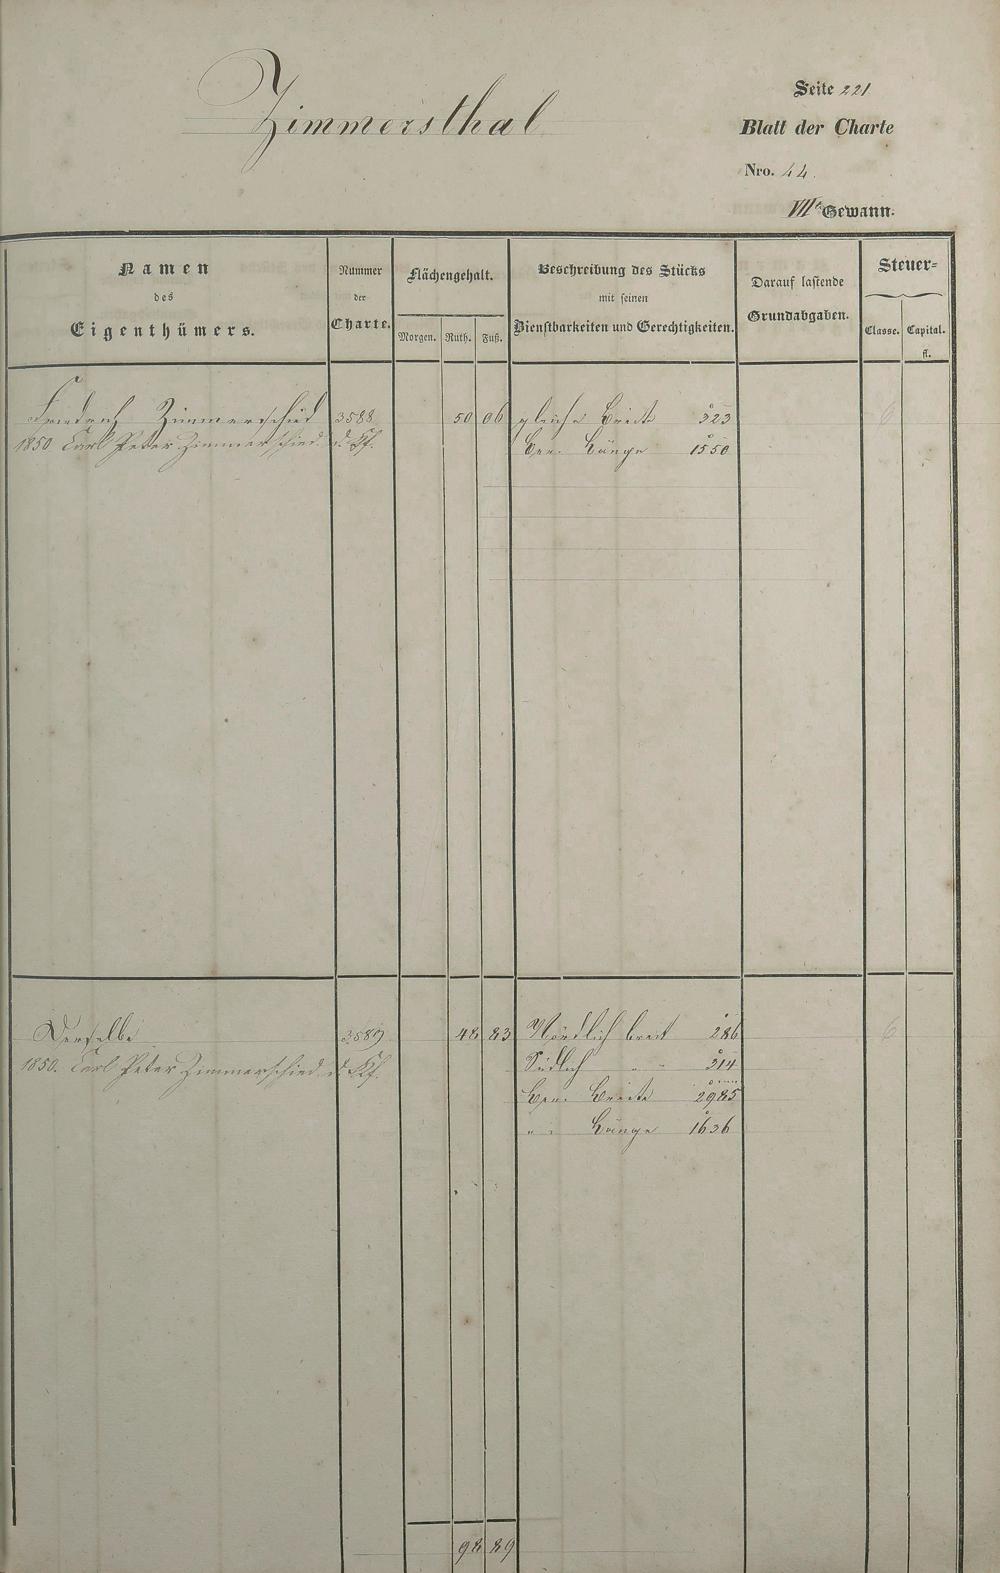 Zimmersthal
Seite 221
Blatt der Charte
Nro. 44.
VIIte Gewann.
Namen
des
Eigenthümers.
Nummer
der
Charte.
Flächengehalt.
Morgen. Ruth. Fuß.
Beschreibung des Stücks
mit seinen
Dienstbarkeiten und Gerechtigkeiten.
Darauf lastende
Grundabgaben.
Steuer=
Classe. Capital.
fl.
Friedrich Zimmerschied 3588 50 06 gleiche Breite 323 6
1850 Carl Peter Zimmerschied d. Kf. Ber. Länge 1550
Derselbe 3589 48 83 Nördlich breit 286 6
1850. Carl Peter Zimmerschied d. Kf. Südlich " " 314
Ber. Breite 2985
" " Länge 1636
98 89